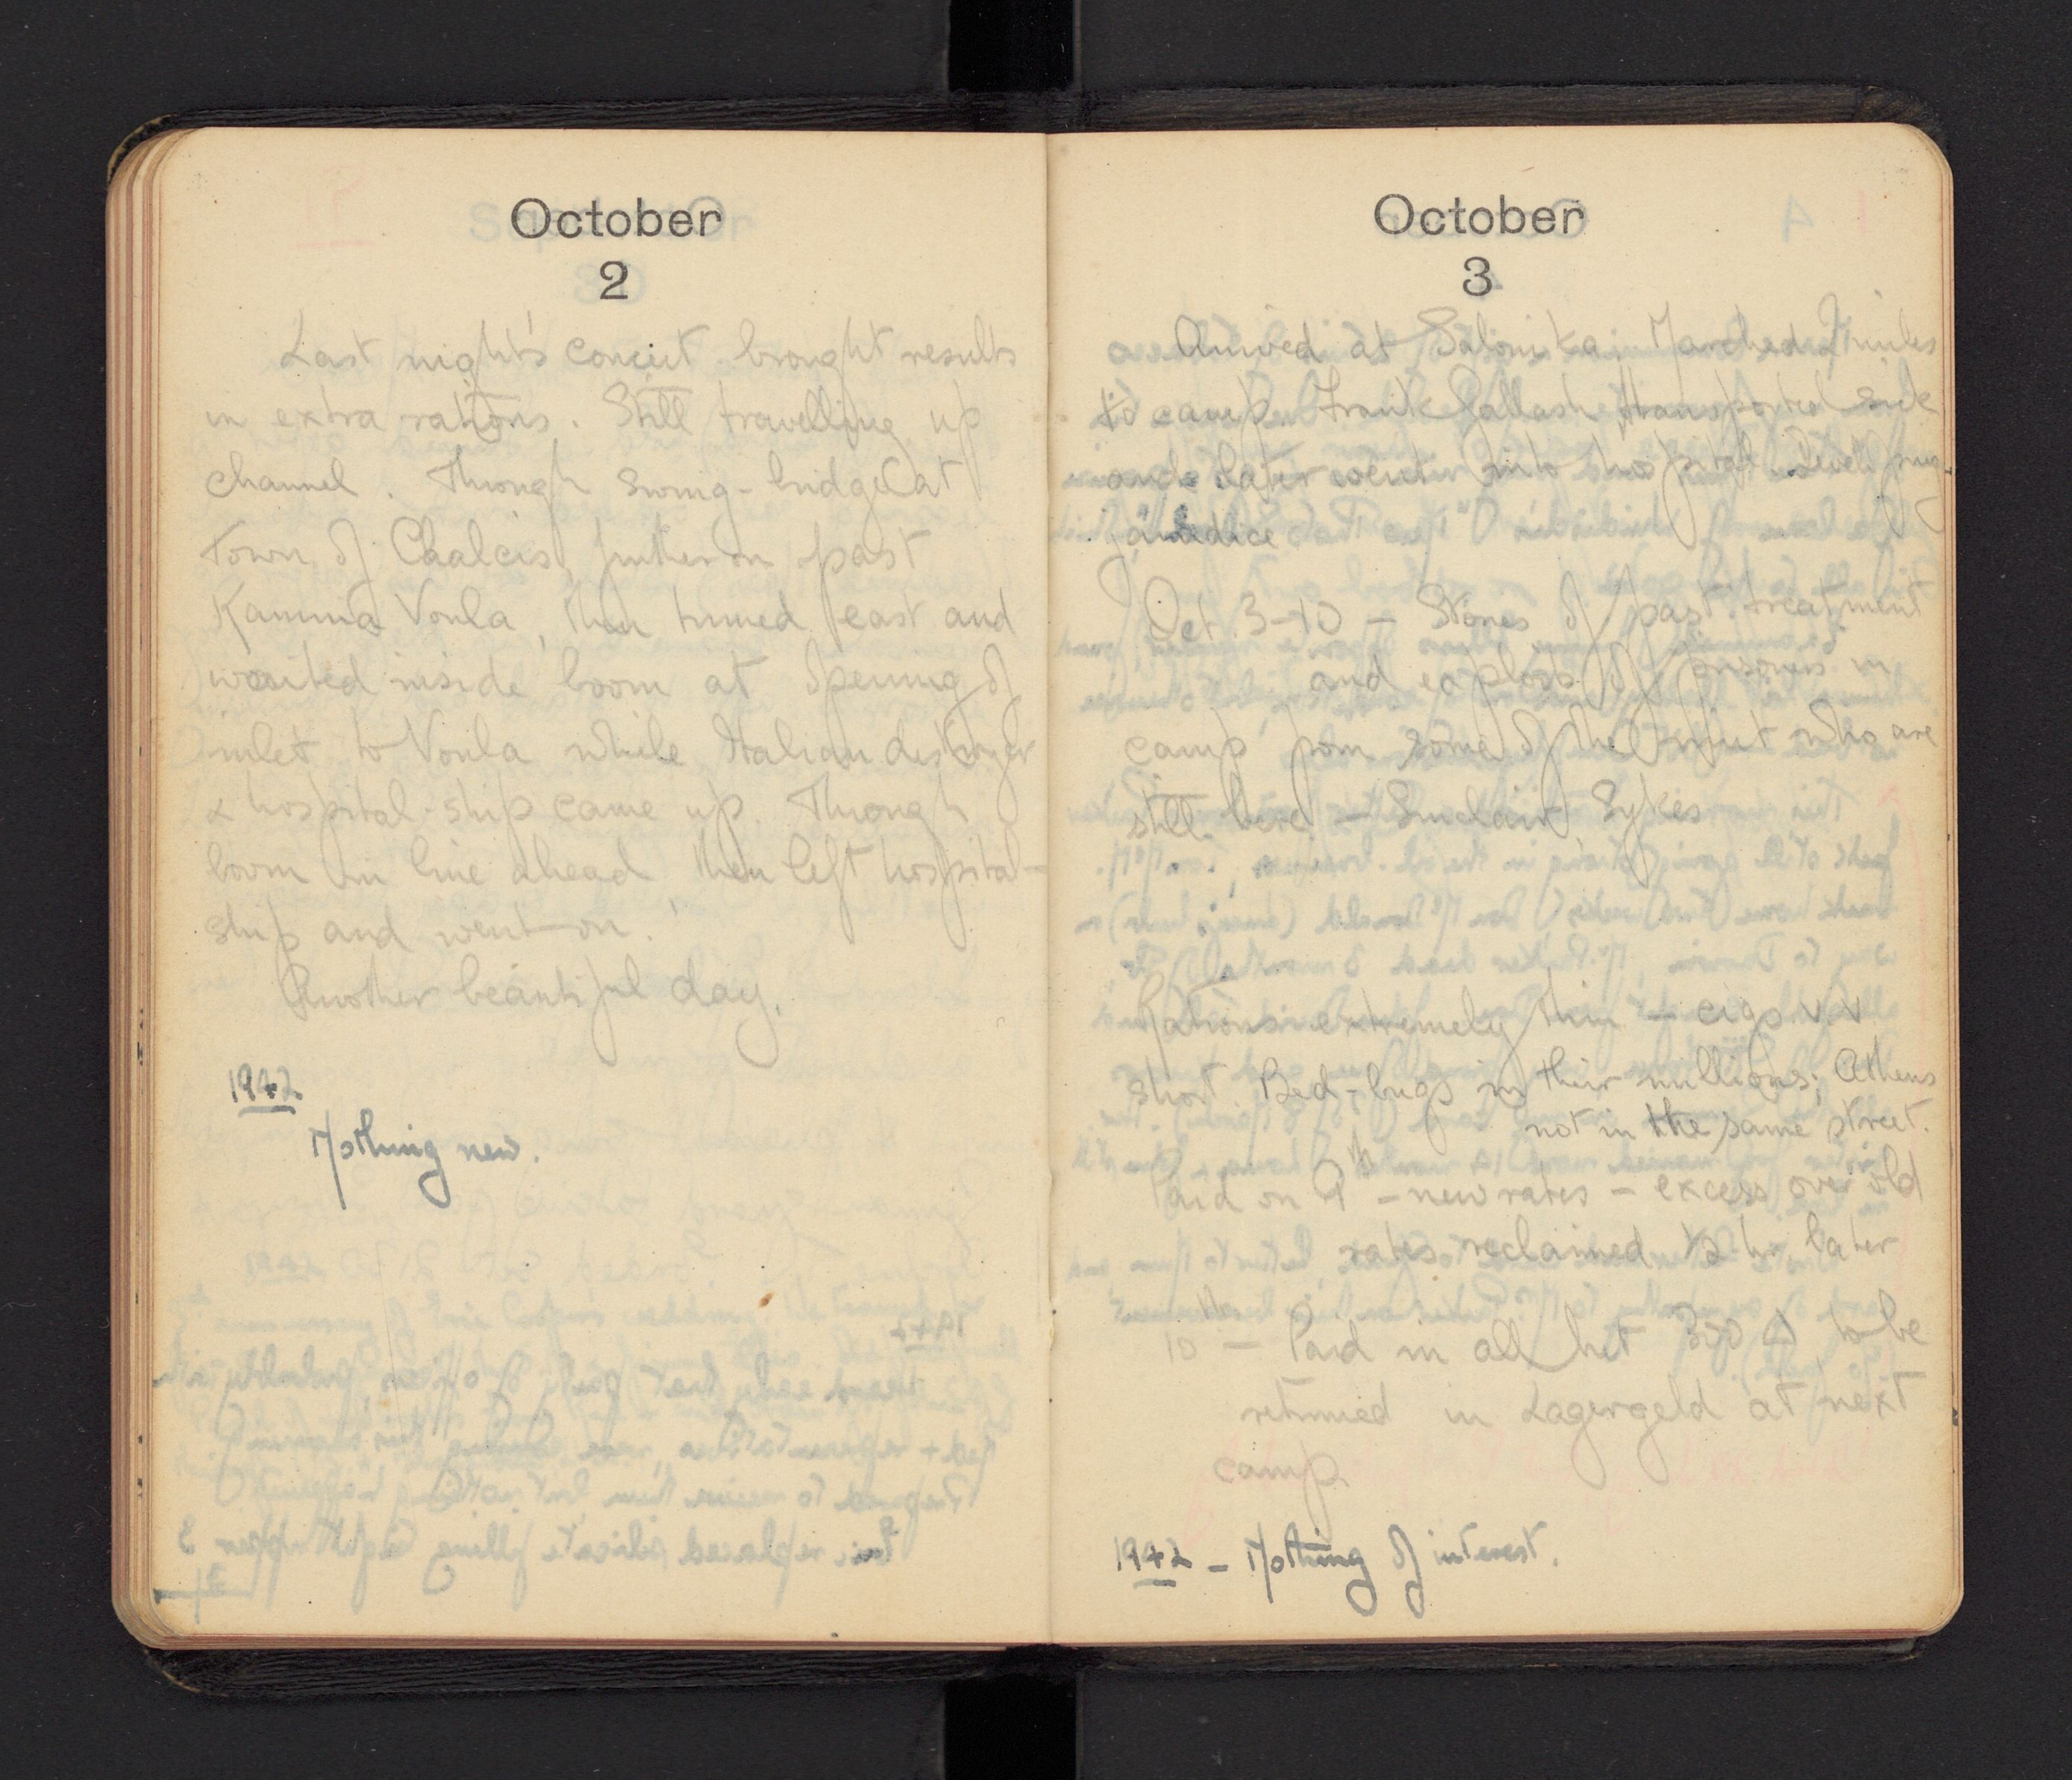 October
2
Last night's concert brought results
in extra rations. Still travelling up
channel. Through swing-bridge at
Town of Chalcis, further on past
Kamina Voula, then turned east and
waited inside boom at opening of
inlet to Voula while Italian destroyer
& hospital-ship came up. Through
boom in line ahead then left hospital-
ship and went on.
Another beautiful day.
1942
Nothing new.
October
3
Arrived at Salonika; Marched miles
to camp. Frank Gallash transported sick
and later went into hospital.
jaundice
Oct. 3-10 – Stories of past treatment
and exploits of prisoners in
camp from some of the who are
still here – Sinclair, Sykes
Rations extremely thin – cigs v.v.
short. Bed-bugs in their millions; Athens
not in the same street.
Paid on 9th – new rates – excess over old
rates reclaimed ½ hr later
10th – Paid in all but to be
returned in Lagergeld at next
camp.
1942 – Nothing of interest.